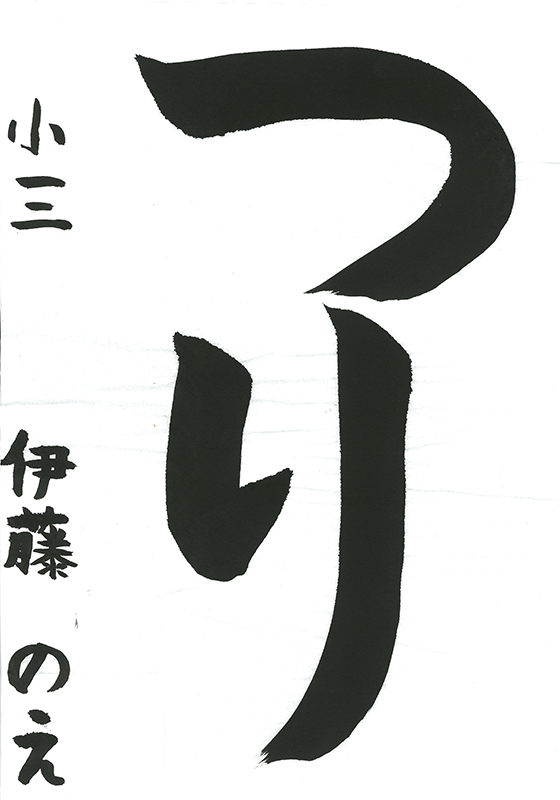 つり
小三 伊藤 のえ